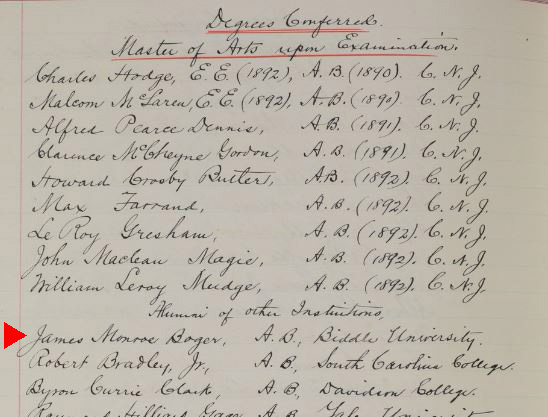 Degrees Conferred.
Master of Arts upon Examination.
Charles Hodge, E.E. (1892), A.B. (1890). C.N.J.
Malcom McLaren, E.E. (1892), A.B. (1890) C.N.J.
Alfred Pearce Dennis, A.B. (1891). C.N.J.
Clarence McCheyne Gordon, A.B. (1891). C.N.J.
Howard Crosby Butler, A.B. (1892) C.N.J.
Max Farrand, A.B. (1892). C.N.J.
Le Roy Gresham, A.B. (1892). C.N.J.
John Maclean Magie, A.B. (1892). C.N.J.
William Leroy Mudge, A.B. (1892). C.N.J.
Alumni of other Institutions,
James Monroe Boger, A.B., Biddle University.
Robert Bradley, Jr., A.B., South Carolina College.
Byron Currie Clark, A.B., Davidson College.